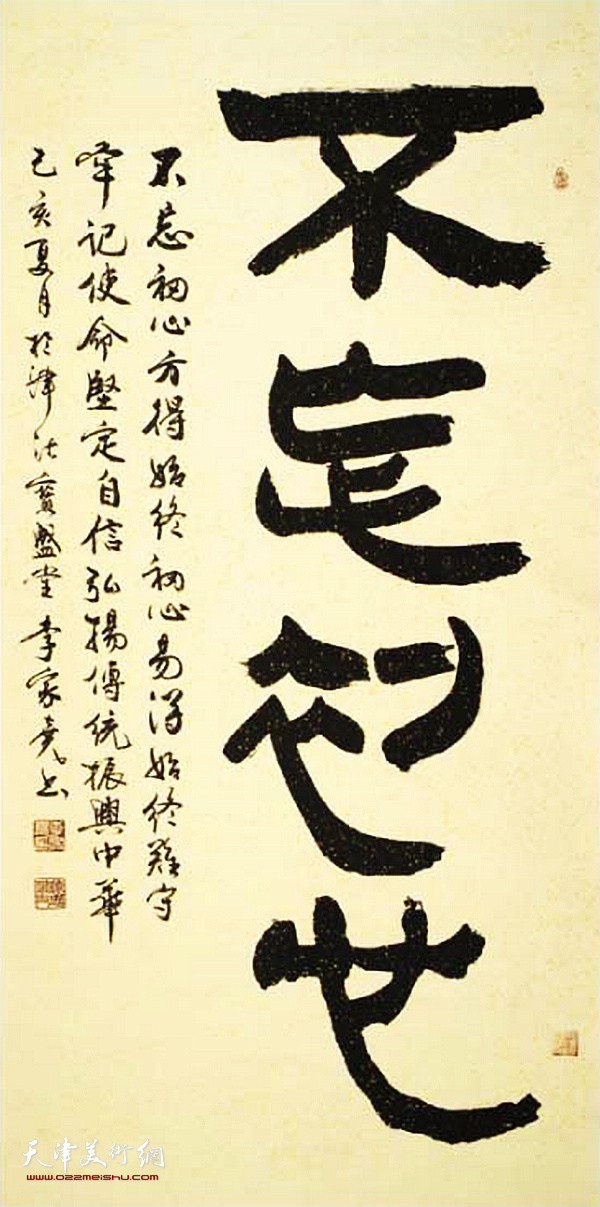 不忘初心
不忘初心方得始終初心易得始終難守
牢記使命堅定自信弘揚傳統振興中華
己亥夏月於津沽寶盛堂李家尧书
天津美術網
www.022meishu.com